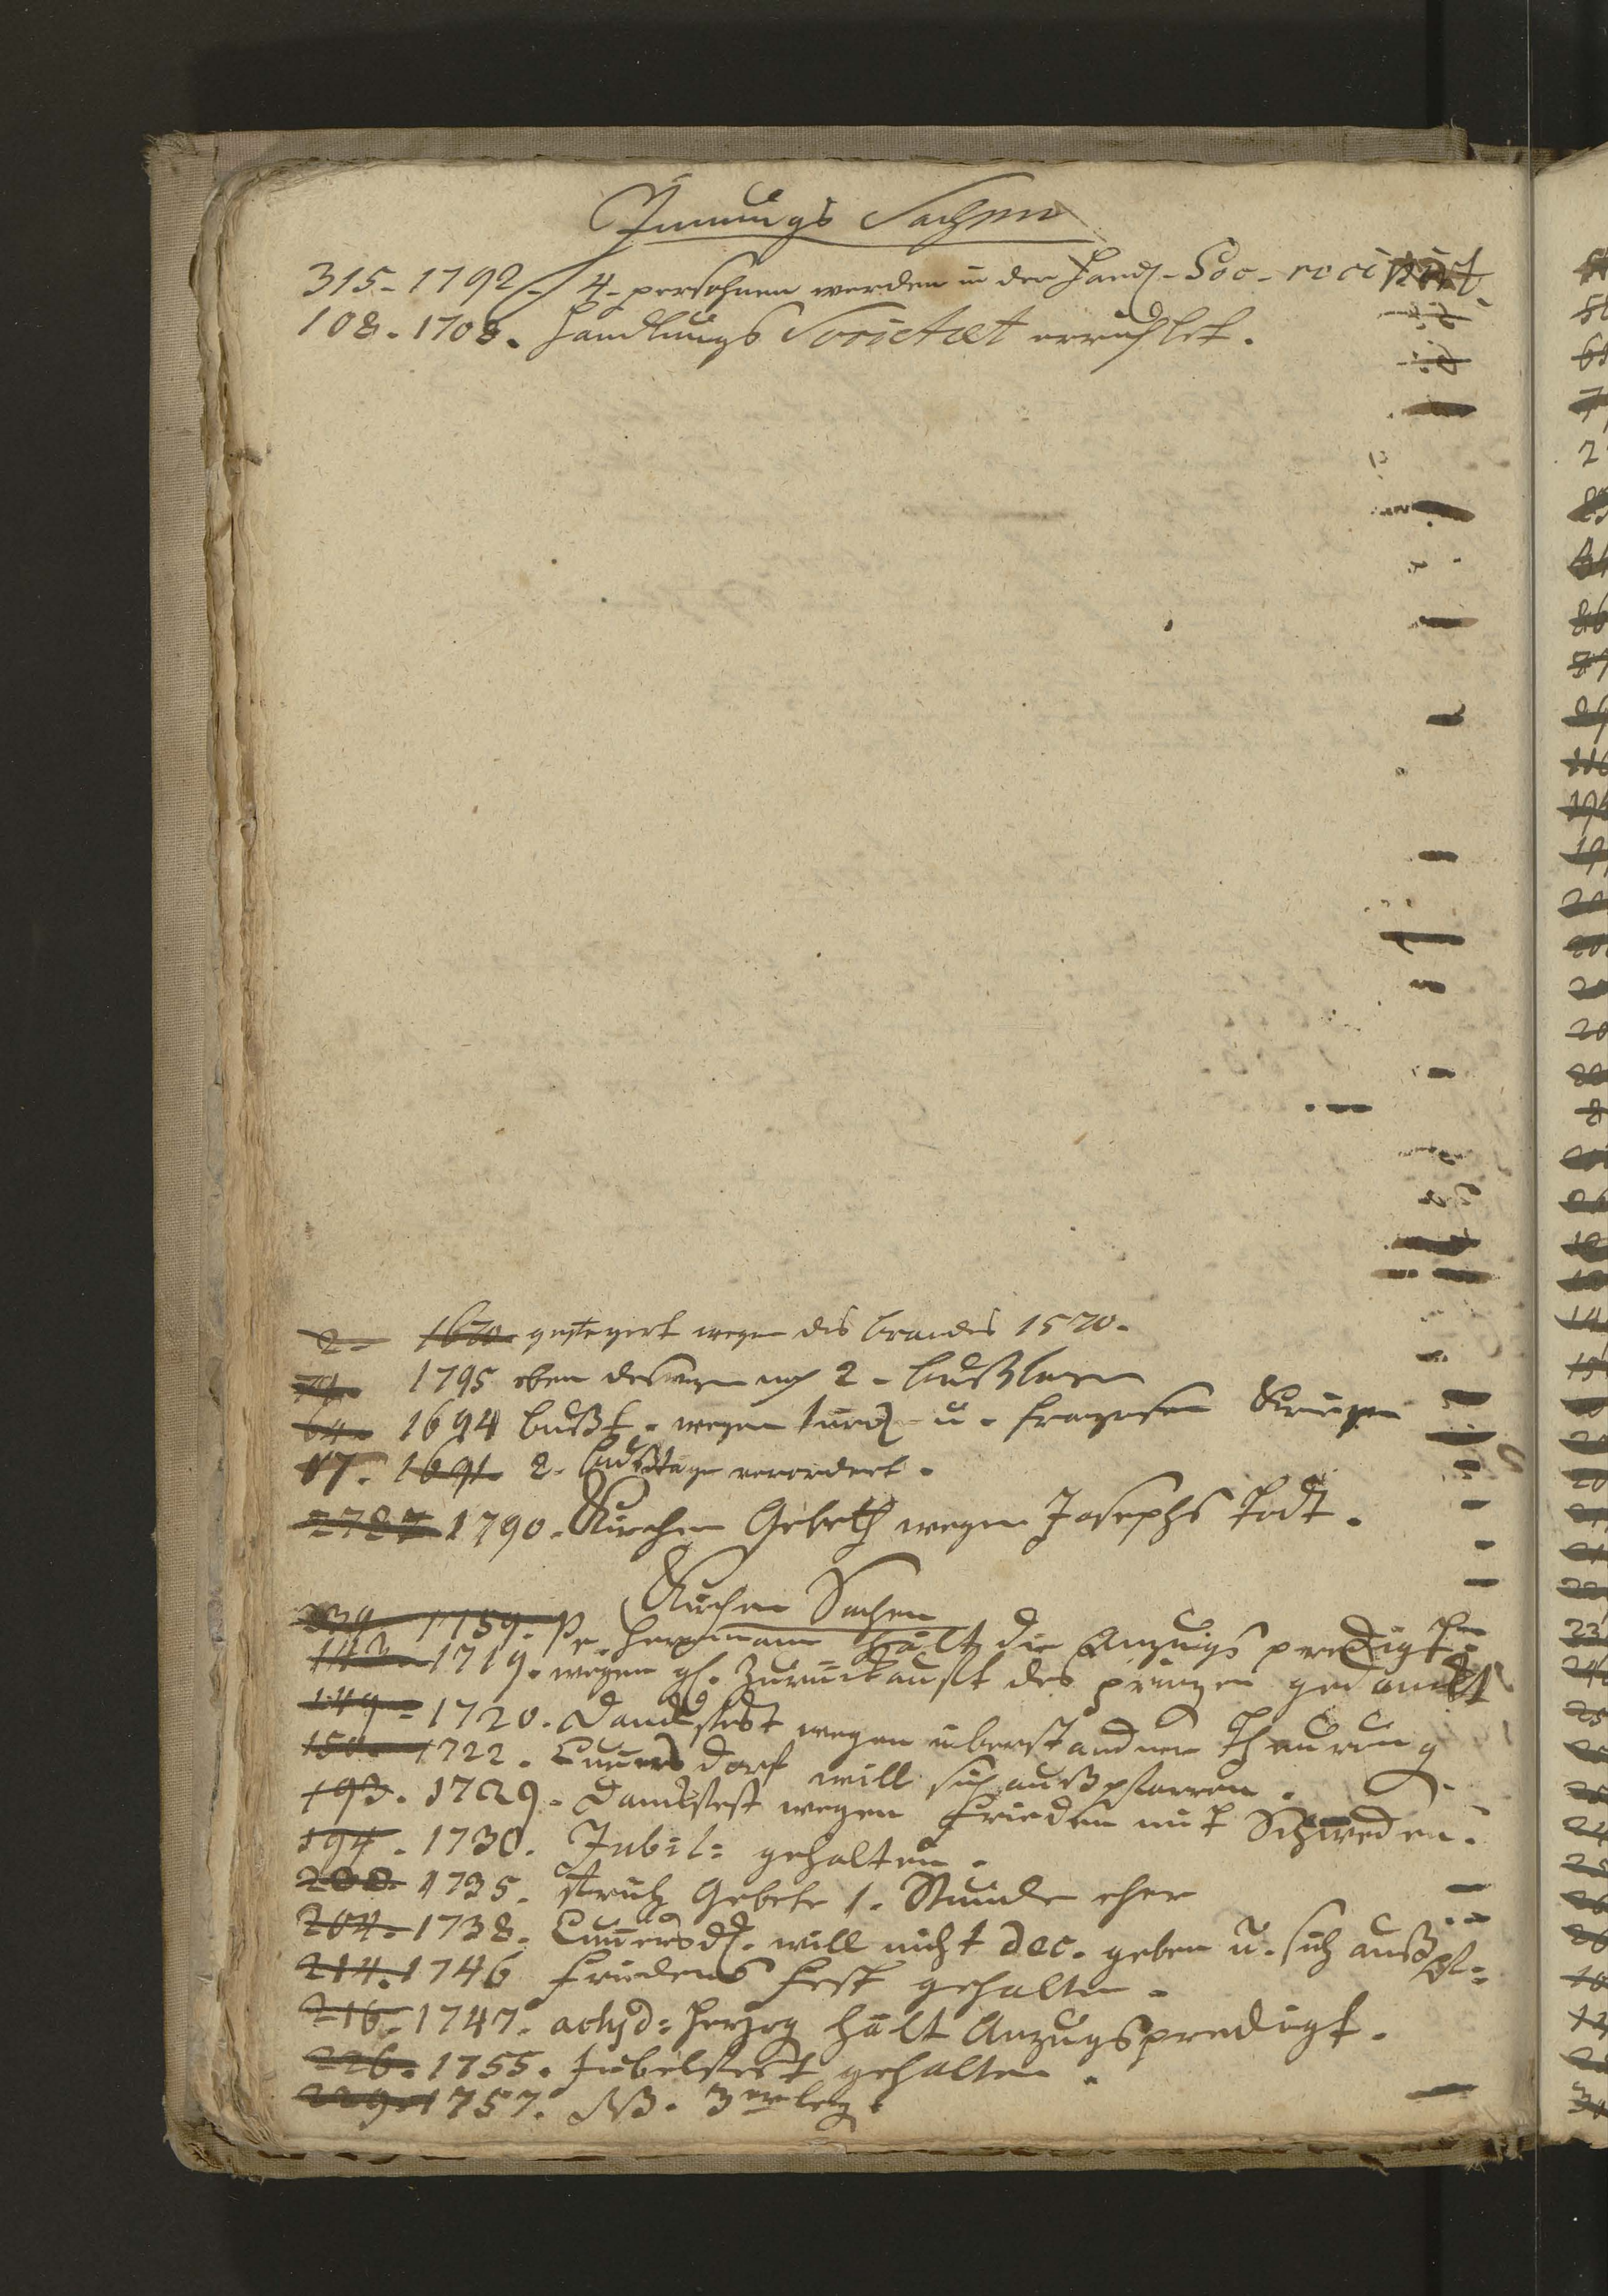 Innungs Sachen
315. 1792. 4. persohnen werden in der Handl. Soc. recipirt
108. 1708. Handlungs Societaet errichtet.
2. 1670 gesteyert wegen des brandes 1570.
74. 1795 eben deswegen noch 2. bußtagen
64. 1694 bußt. wegen türck. u. franzosen Kriegen
17. 1691. 2. bußtage verordert.
278 1790. Kirchen Gebeth wegen Josephs Todt.
Kirchen Sachen
339 1759. Pr. Herrmann hält die Anzugs predigten
143. 1719. wegen gl. Zurückkunft des prinzen gedanckt
149. 1720. Danckfest wegen überstandner Theurung
150. 1722. Cunnersdorf will sich außpfarren.
193. 1729. Danckfest wegen Frieden mit Schweden.
194. 1730. Jubil: gehalten.
200. 1735. früh Gebete 1. Stunde eher
204. 1738. Cunnersd. will nicht dec. geben u. sich außpf:
214. 1746 Friedens Fest gehalten.
216. 1747. achid: Herzog hält Anzugspredigt.
226. 1755. Jubelfest gehalten.
229. 1757. NB.